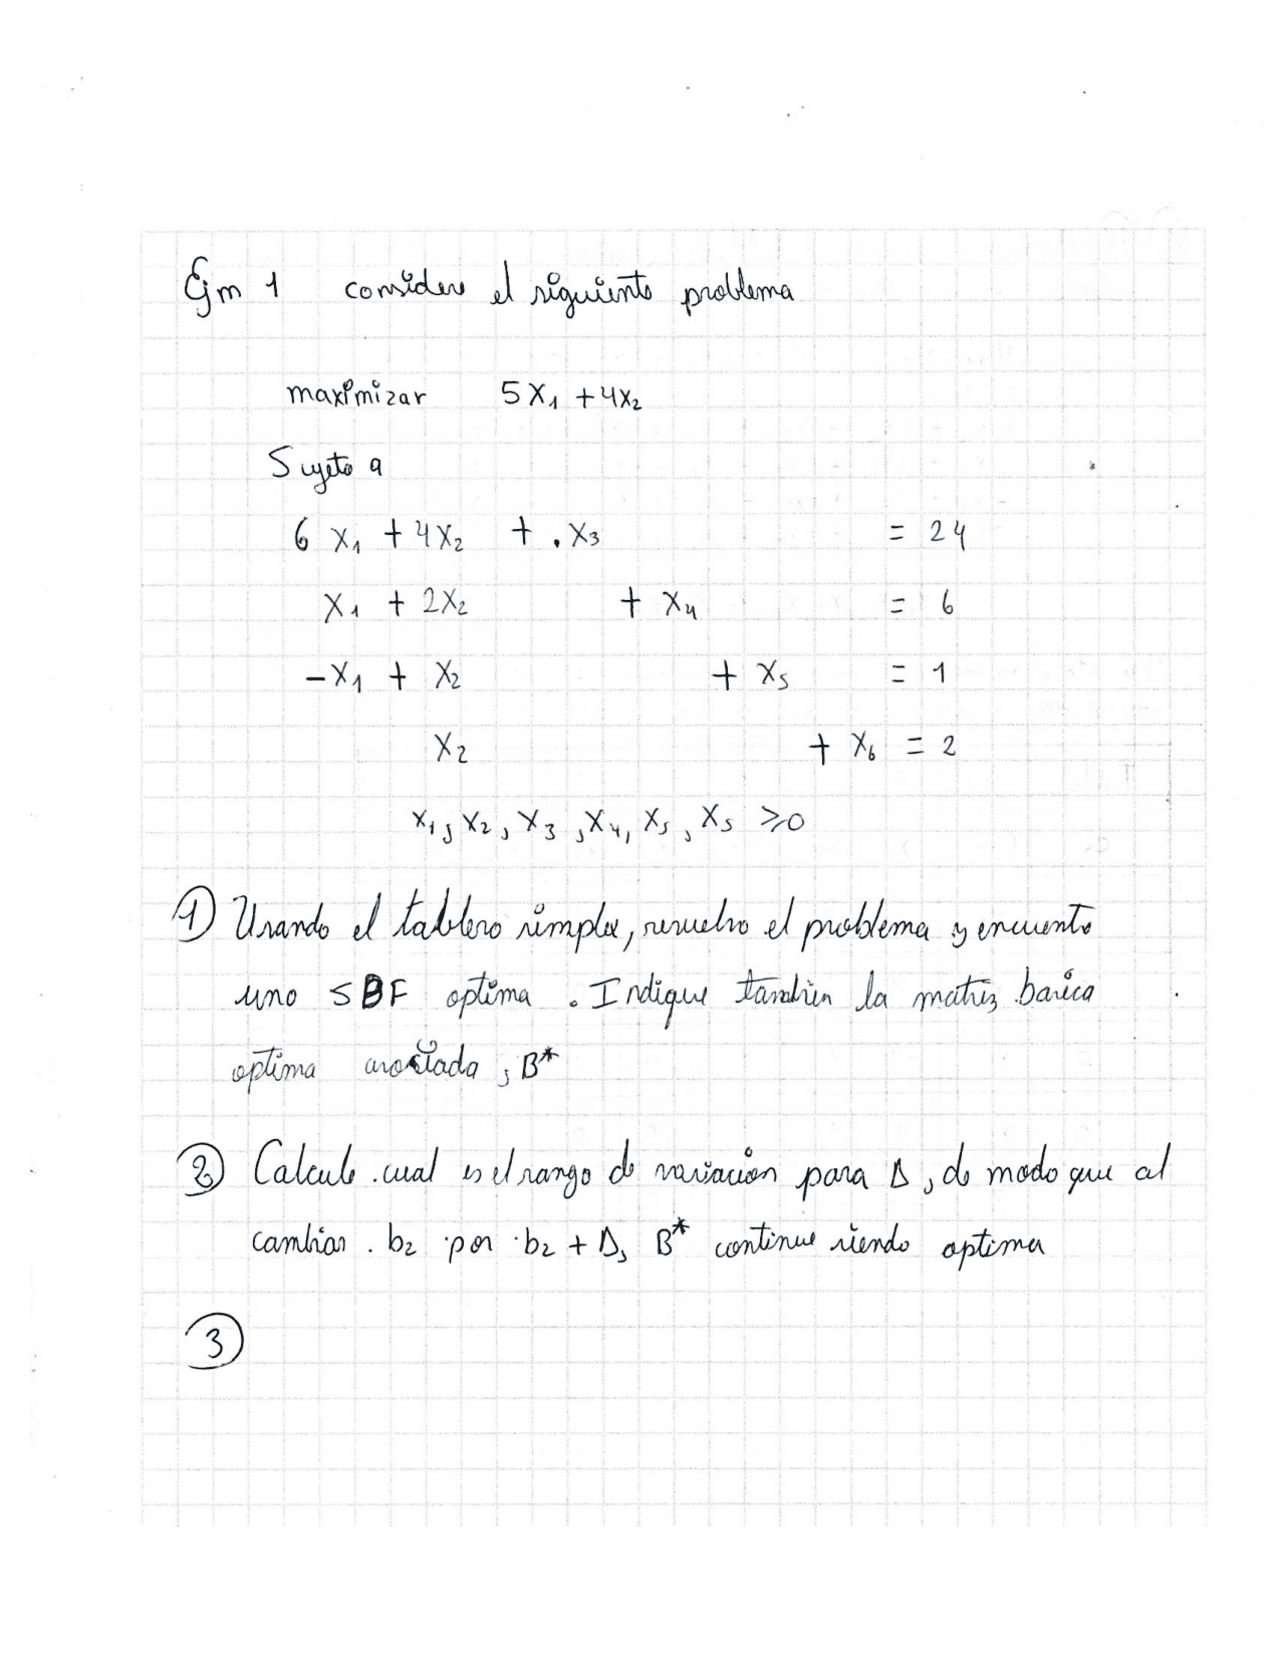 Ejm 1 considere el siguiente problema
maximizar 5x₁ + 4x₂
Sujeto a
6x₁ + 4x₂ + x₃ = 24
x₁ + 2x₂ + x₄ = 6
-x₁ + x₂ + x₅ = 1
x₂ + x₆ = 2
x₁, x₂, x₃, x₄, x₅, x₅ ≥ 0
① Usando el tablero simplex, resuelva el problema y encuentre
una SBF optima. Indique tambien la matriz basica
optima asociada, B*
② Calcule cual es el rango de variación para Δ, de modo que al
cambiar b₂ por b₂ + Δ, B* continue siendo optima
③